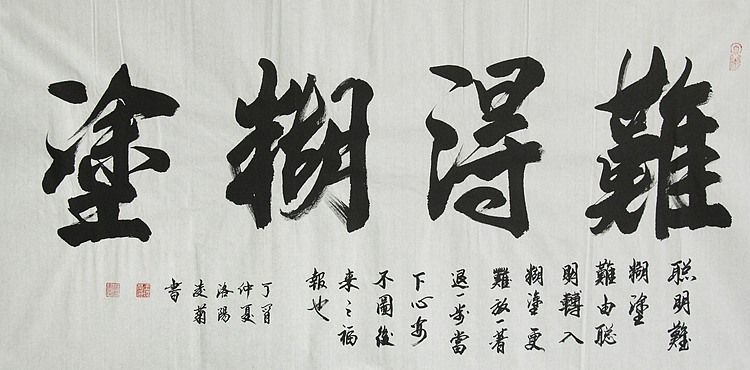 難得糊塗
聰明難
糊塗
難由聰
明轉入
糊塗更
難放一著
退一步當
下心安
不圖後
来之福
報也
丁酉
仲夏
洛陽
凌菊
書